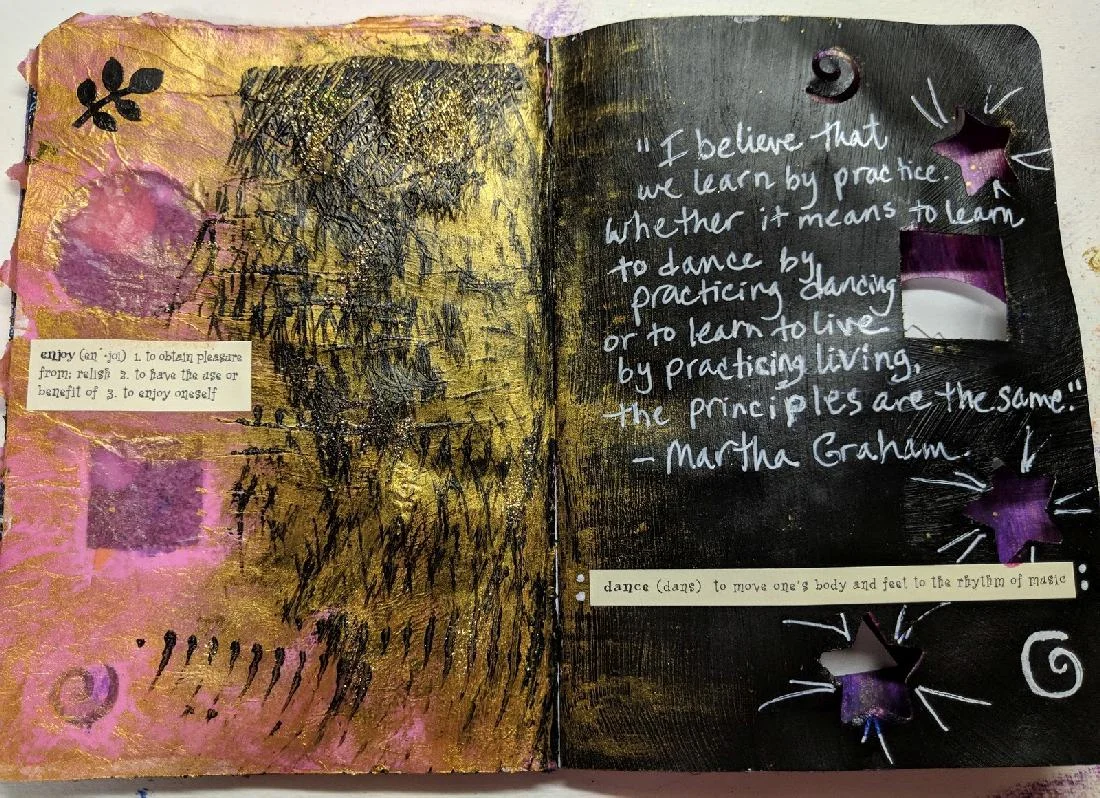 enjoy (en'·joi) 1. to obtain pleasure
from; relish 2. to have the use or
benefit of 3. to enjoy oneself
"I believe that
we learn by practice.
Whether it means to learn
to dance by
practicing dancing
or to learn to live
by practicing living,
the principles are the same."
- Martha Graham.
dance (dans) to move one's body and feet to the rhythm of music